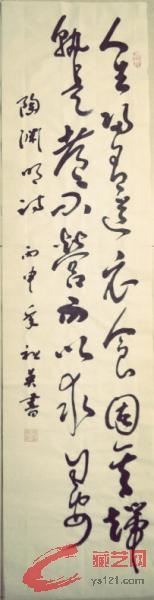 人生归有道衣食固其端
孰是都不营而以求自安
陶渊明诗 丙申 季社英书
藏艺网
ys121.com